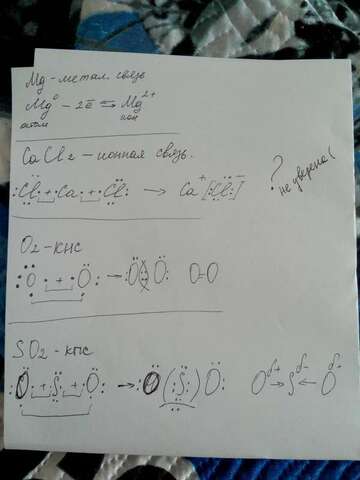 Mg - метал. связь
Mg⁰ - 2ē ⇆ Mg²⁺
атом ион
CaCl2 - ионная связь.
:Cl· + ·Ca· + ·Cl: → Ca⁺ [:Cl:]⁻
? не уверена(
O2 - кнс
:O· + ·O: → :O(::)O: O=O
SO2 - кпс
:O· + ·S· + ·O: → :O(:S:)O: Oδ+ → Sδ- ← Oδ-